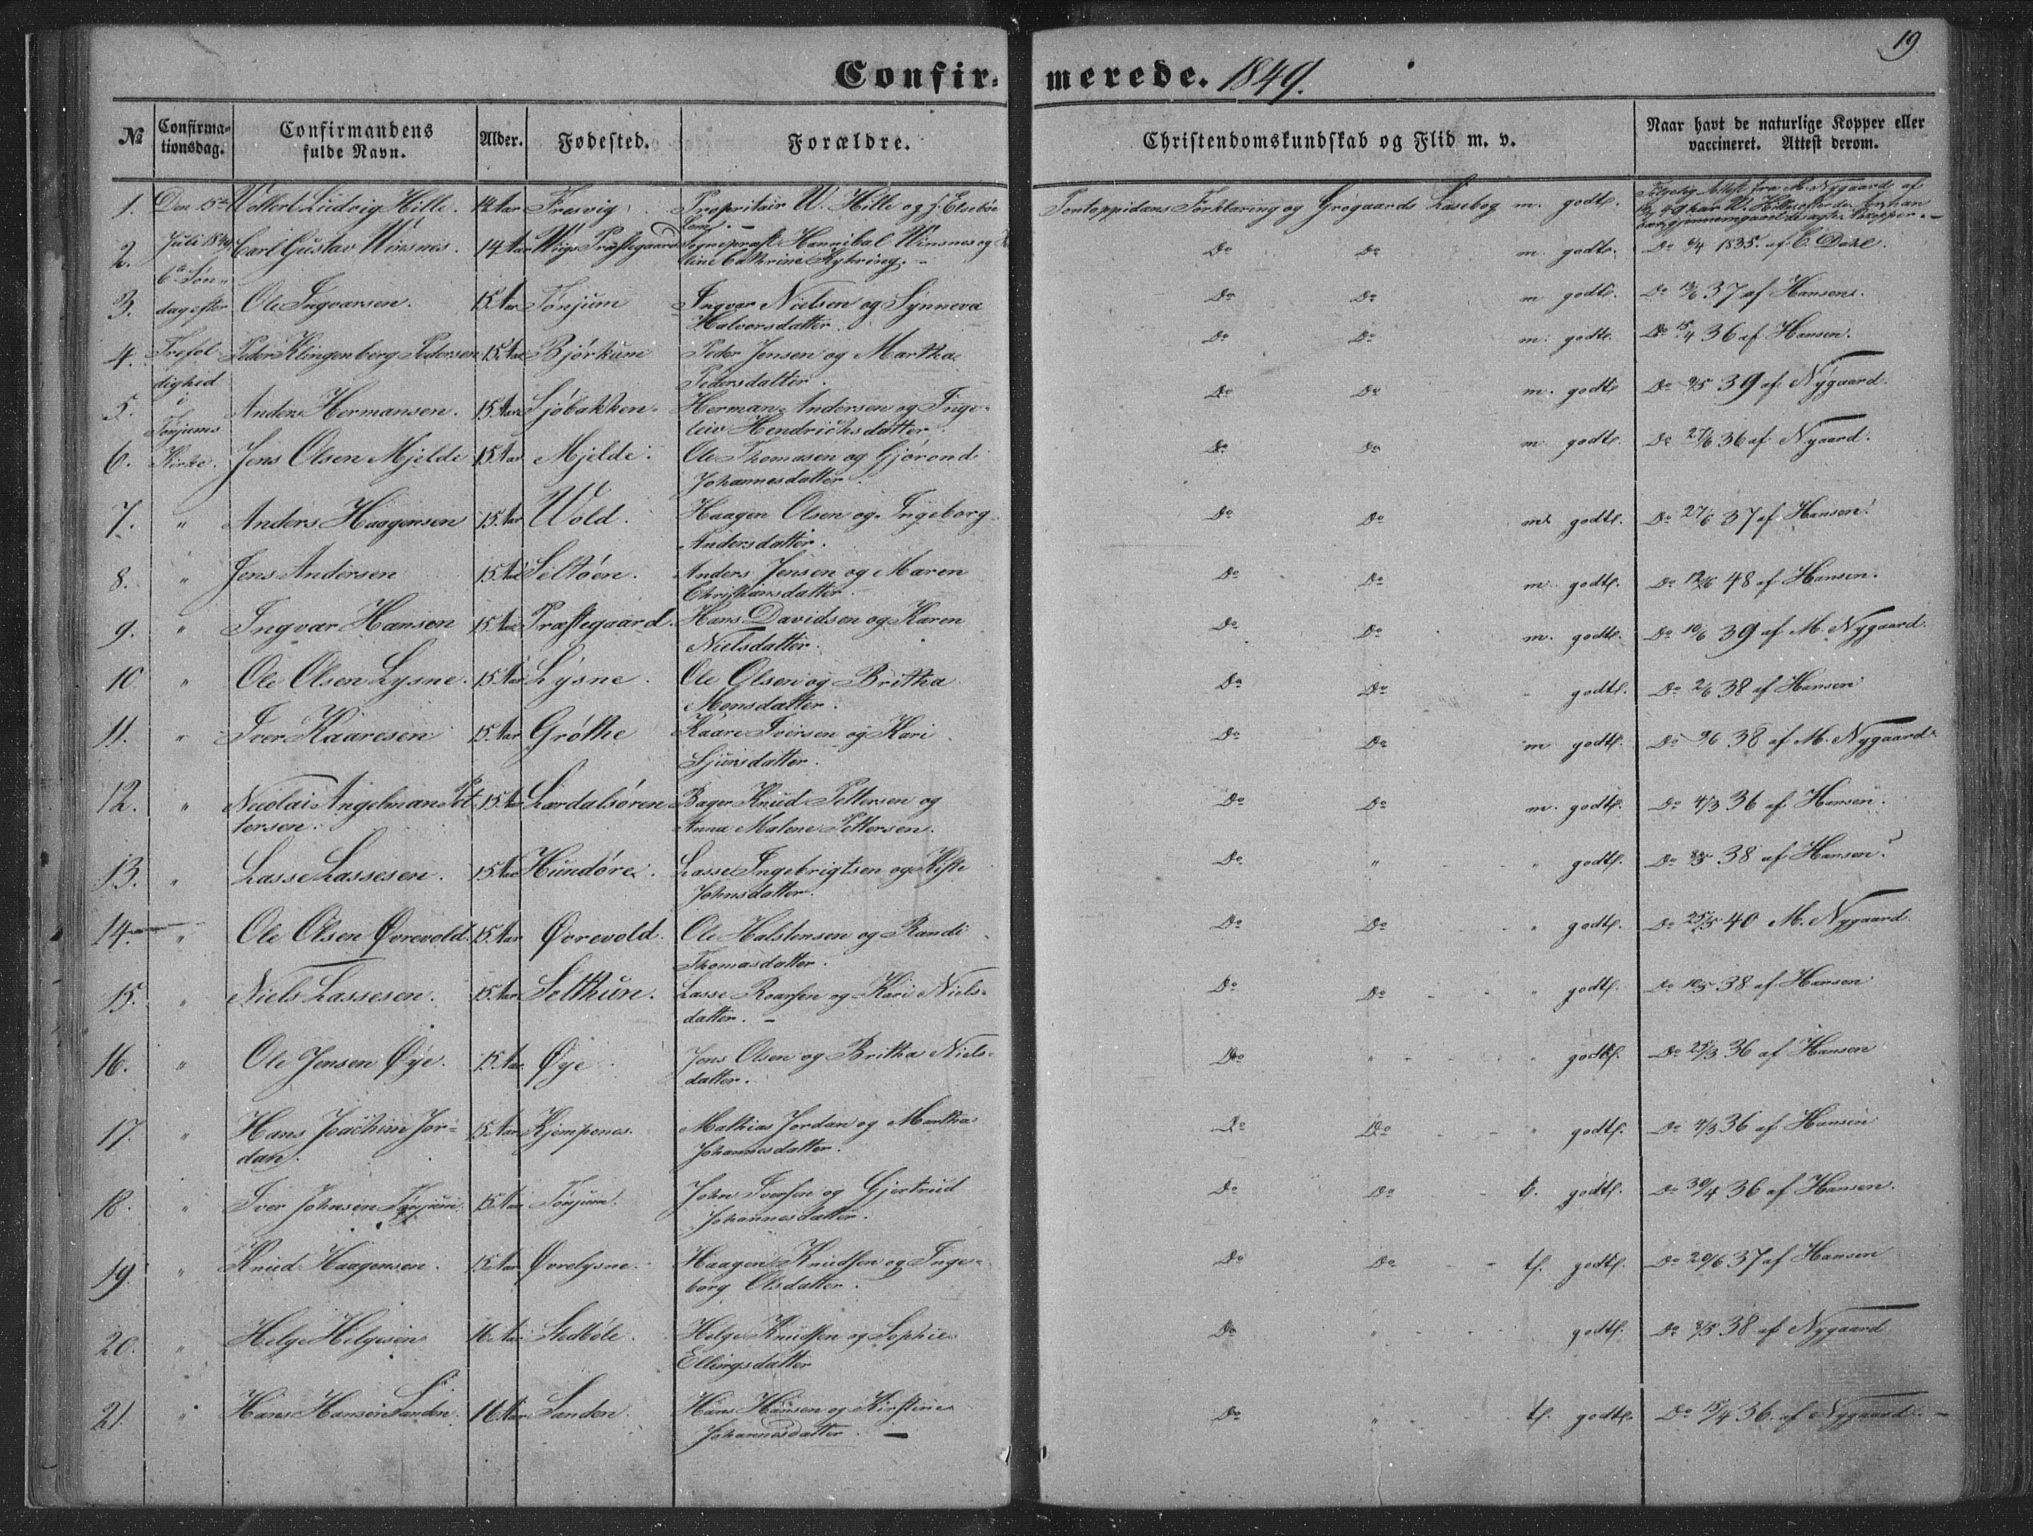 19
Confirmerede. 1849.
№ Confirmationsdag. Confirmandens fulde Navn. Alder. Fødested. Forældre. Christendomskundskab og Flid m. v. Naar havt de naturlige Kopper eller vaccineret. Attest derom.
1. Den 15de Wollert Ludvig Hille. 14 Aar Fresvig Propritair W. Hille og Pontoppidans Forklaring og Grogaards Læsebog m. godtf.
2. Juli 1849 Carl Gustav Winsnes. 14 Aar Præstegaard Sognepræst Hannibal Winsnes og Do Do m. godtf. Do 1835. af C. Dahl.
6te Søn- line Cathrine
3. dag efter Ole Ingvarsen. 15 Aar Tønjum Ingvar Nielsen og Synneva Do Do m godtf. Do 37 af Hansen.
Halvorsdatter.
4. Trefol Peder Klingenberg Pedersen 15 Aar Bjørkum Peder Jensen og Martha Do Do m. godtf. Do 15/4 36 af Hansen.
dighed Pedersdatter.
5. i Anders Hermansen. 15 Aar Sjøbakken. Herman Andersen og Inge- Do Do m. godtf. Do 9/5 39 af Nygaard
Tønjums leiv Hendrichsdatter.
6. Kirke. Jens Olsen Mjelde 15 Aar Mjelde. Ole Thomasen og Gjørond Do Do m godtf. Do 27/6 36 af Nygaard.
Johannesdatter.
7. " Anders Haagensen 15 Aar Wold. Haagen Olsen og Ingeborg Do Do m. godtf. Do 27/6 37 af Hansen.
Andersdatter.
8. " Jens Andersen 15 Aar Seltøen. Anders Jensen og Maren Do Do m. godtf. Do 12/6 48 af Hansen.
Christiansdatter.
9. " Ingvar Hansen 15 Aar Præstegaard. Hans Davidsen og Karen Do Do m. godtf. Do 10/6 39 af M. Nygaard.
Nielsdatter.
10 " Ole Olsen Lysne. 15 Aar Lysne. Ole Olsen og Britha Do Do - godtf. Do 2/6 38 af Hansen
Monsdatter.
11. " Iver Kaaresen 15 Aar Grøthe Kaare Iversen og Kari Do Do m godtf. Do 9/6 38 af M. Nygaard.
Sjursdatter.
12. " Nicolai Angelman Pet 15 Aar Lærdalsøren Bager Knud Pettersen og Do Do m. godtf. Do 4/3 36 af Hansen.
tersen. Anna Malene Pettersen.
13. " Lasse Lassesen. 15 Aar Hundøre. Lasse Ingebrigtsen og Do " " godtf. Do 38 af Hansen.
Johnsdatter.
14. " Ole Olsen Øvrevold. 15 Aar Øvrevold. Ole Halstensen og Randi Do Do " godtf. Do 25/5 40 M. Nygaard
Thomasdatter.
15. " Niels Lassesen. 15 Aar Selthun. Lasse Roarsen og Kari Niels- Do Do - " godtf. Do 10/5 38 af Hansen
datter. -
16. " Ole Jensen Øye. 15 Aar Øye Jens Olsen og Britha Niels- Do " - - godtf. Do 25/3 36 af Hansen
datter.
17. " Hans Joachim Jor- 15 Aar Kjempenes. Mathias Jordan og Martha Do Do - - " godtf. Do 4/3 36 af Hansen
dan. Johannesdatter.
18. " Iver Johnsen Tønjum. 15 Aar Tønjum. John Iversen og Gjertrud Do Do - tf. godtf. Do 30/4 36 af Hansen.
Johannesdatter.
19. " Knud Haagensen. 15 Aar Øvrelysne. Haagen Knudsen og Inge- Do Do - - tf. godtf. Do 20/6 37 af Hansen
borg Olsdatter.
20. " Helge Helgesen 16 Aar Stedbøle. Helge Knudsen og Sophie Do " - - godtf. Do 38 af Nygaard
Ellingsdatter
21. " Hans Hansen Sanden. 16 Aar Sanden. Hans Hansen og Kirstine Do " tf. godtf. Do 15/4 36. af Nygaard. -
Johannesdatter. -